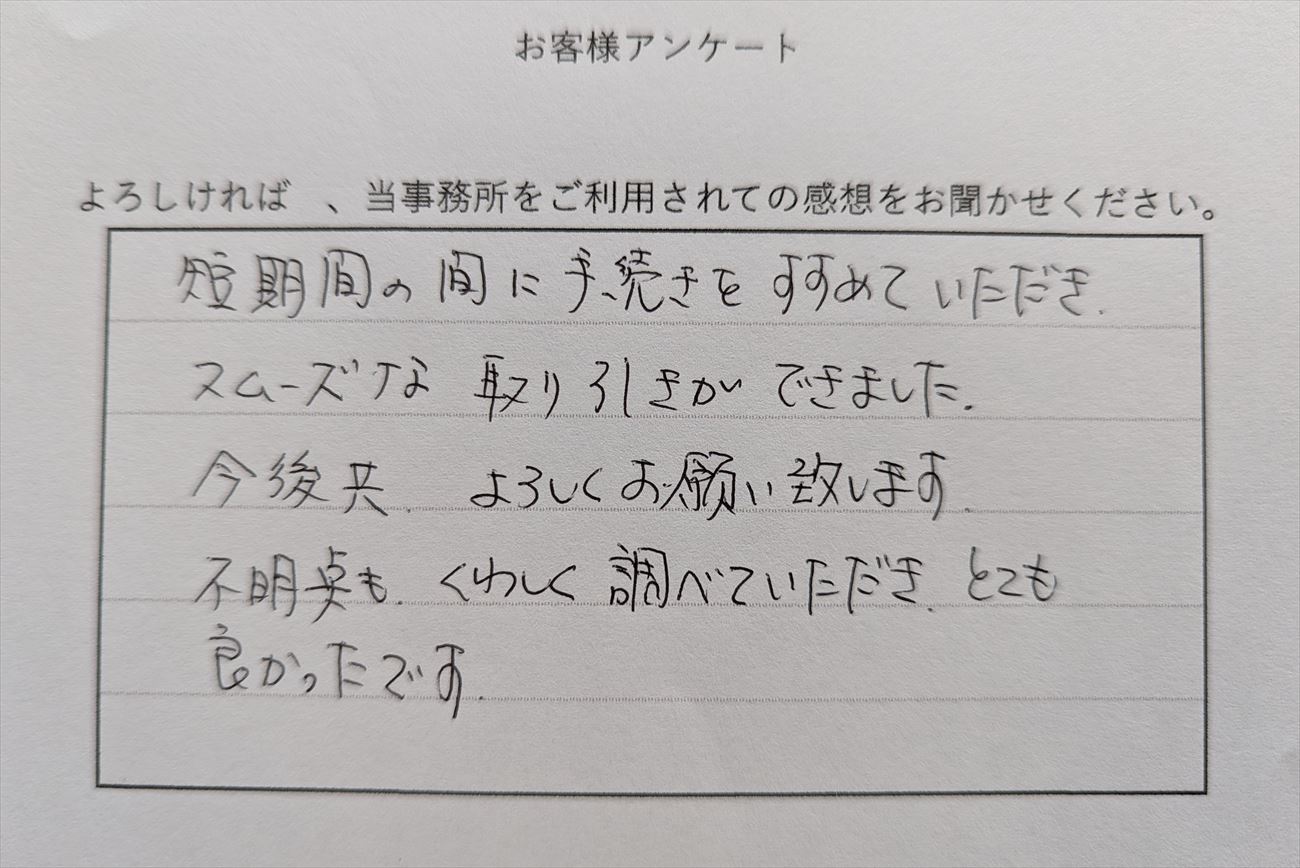 お客様アンケート
よろしければ 、当事務所をご利用されての感想をお聞かせください。
短期間の間に手続きをすすめていただき.
スムーズな取り引きができました.
今後共. よろしくお願い致します.
不明点も. くわしく調べていただき. とても
良かったです.